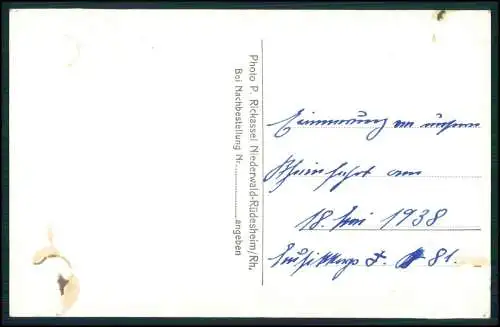 Photo P. Rickassel Niederwald-Rüdesheim/Rh.
Bei Nachbestellung Nr. ............ angeben
Erinnerung an unsern
Rheinfahrt am
18. Juni 1938
81.